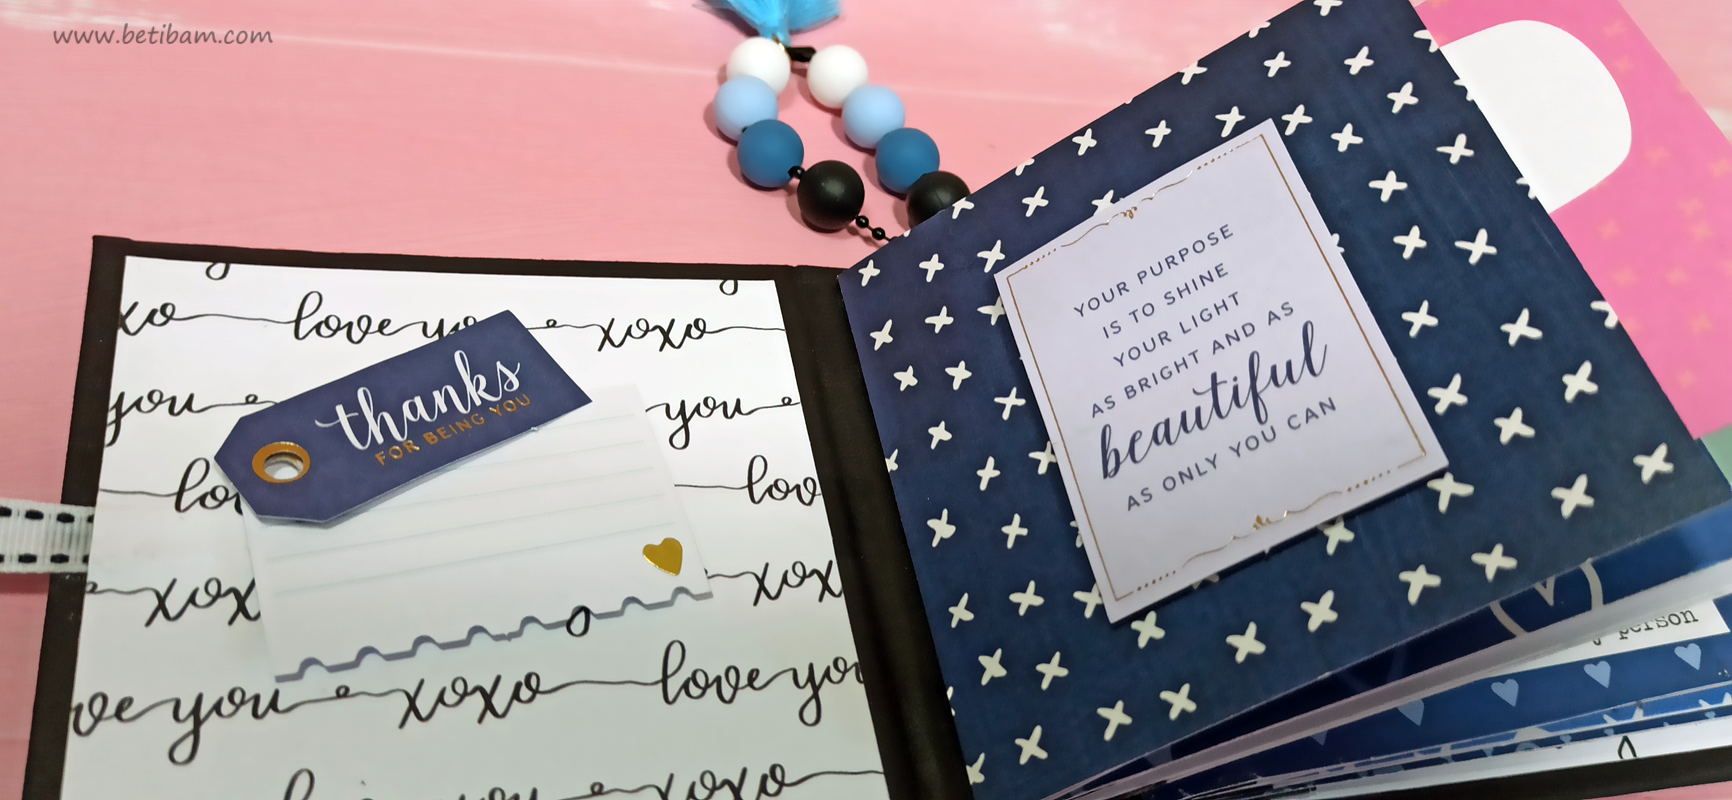 www.betibam.com
xo love you xoxo
you you
love
thanks
FOR BEING YOU
xox xox
love you xoxo love you
you xoxo
YOUR PURPOSE
IS TO SHINE
YOUR LIGHT
AS BRIGHT AND AS
beautiful
AS ONLY YOU CAN
person